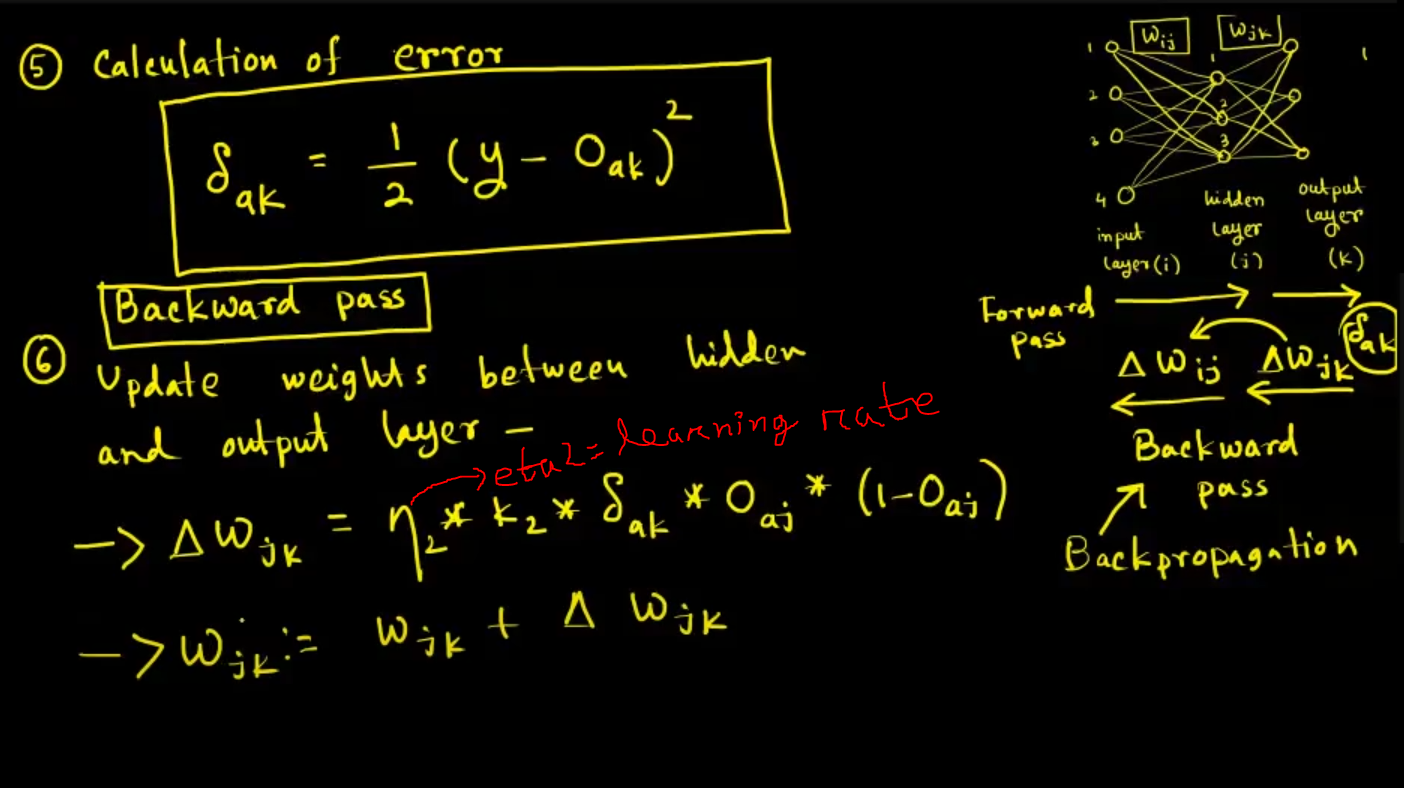 ⑤ Calculation of error
δak = 1/2 (y - Oak)²
Backward pass
⑥ Update weights between hidden
and output layer -
→ eta2 = learning rate
→ ΔWjk = η2 * k2 * δak * Oaj * (1-Oaj)
→ Wjk := Wjk + Δ Wjk
Wij Wjk
1
2
3
4
1
2
3
input
layer(i)
hidden
layer
(j)
output
layer
(k)
Forward
pass
ΔWij ΔWjk δak
Backward
pass
Backpropagation